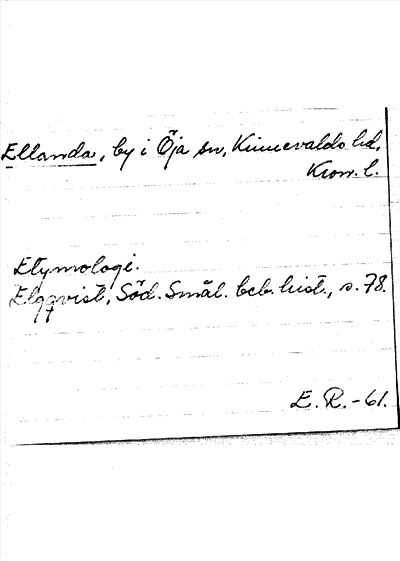 Ellanda, by i Öja sn, Kinnevalds hd,
Kron. l.
Etymologi.
Elgqvist, Söd. Smål. beb. hist., s. 78.
E. R. -61.